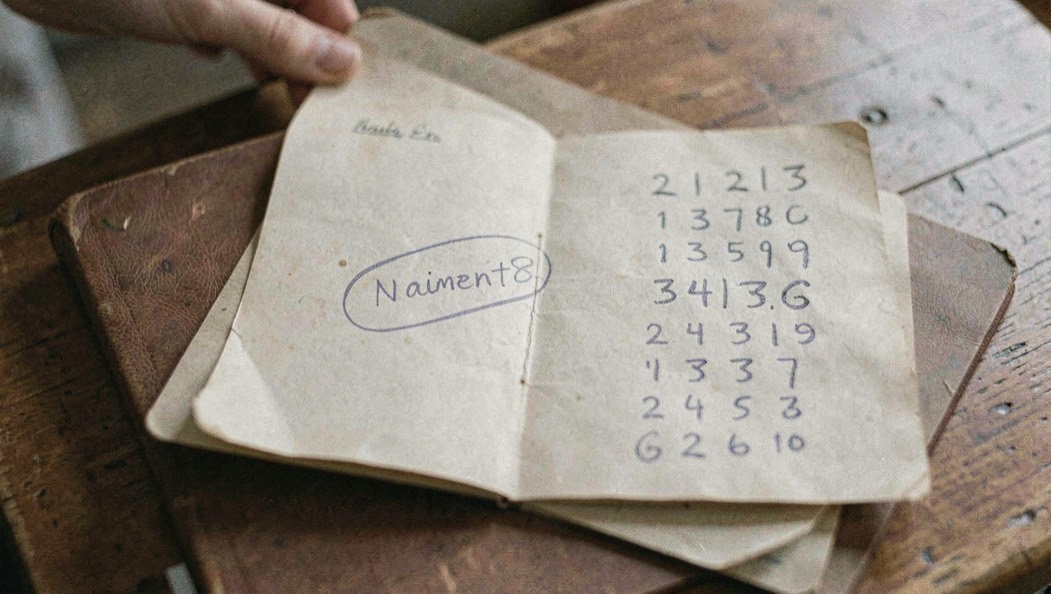 Naiment8
2 1 2 1 3
1 3 7 8 0
1 3 5 9 9
3 4 1 3.6
2 4 3 1 9
1 3 3 7
2 4 5 3
6 2 6 10